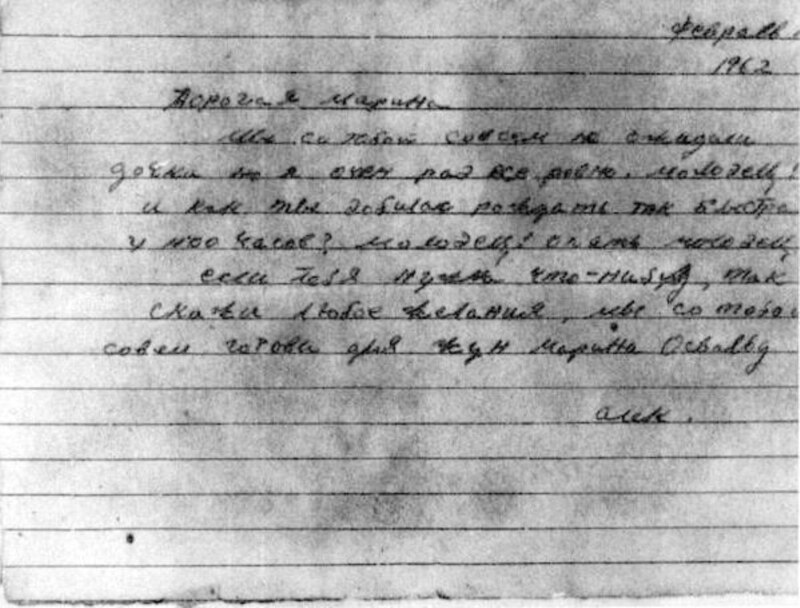 Февраль
1962
Дорогая Марина
мы со тобой совсем не ожидали
дочка но я очен рад все ровно. молодец!
и как ты рождать так быстра
часов? молодец! опять молодец
если тебя нужен что-нибудь, так
скажи любое желания, мы со тобой
совем готови для жун Марина Освальд
алек.